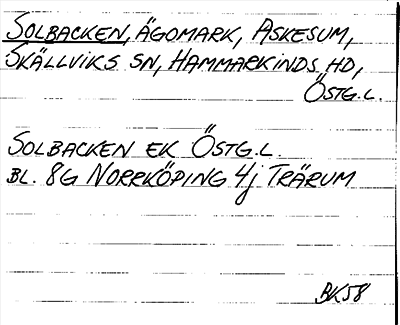 SOLBACKEN, ÄGOMARK, ASKESUM,
SKÄLLVIKS SN, HAMMARKINDS HD,
ÖSTG.L.
SOLBACKEN EK ÖSTG.L.
BL. 8G NORRKÖPING 4j TRÄRUM
BK58